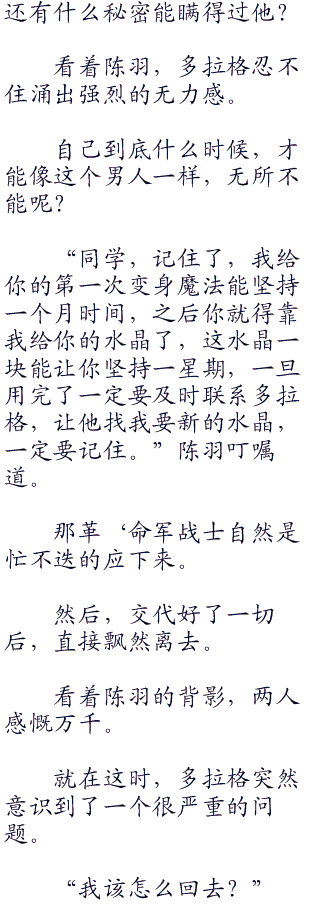 还有什么秘密能瞒得过他？
看着陈羽，多拉格忍不
住涌出强烈的无力感。
自己到底什么时候，才
能像这个男人一样，无所不
能呢？
“同学，记住了，我给
你的第一次变身魔法能坚持
一个月时间，之后你就得靠
我给你的水晶了，这水晶一
块能让你坚持一星期，一旦
用完了一定要及时联系多拉
格，让他找我要新的水晶，
一定要记住。”陈羽叮嘱
道。
那革‘命军战士自然是
忙不迭的应下来。
然后，交代好了一切
后，直接飘然离去。
看着陈羽的背影，两人
感慨万千。
就在这时，多拉格突然
意识到了一个很严重的问
题。
“我该怎么回去？”